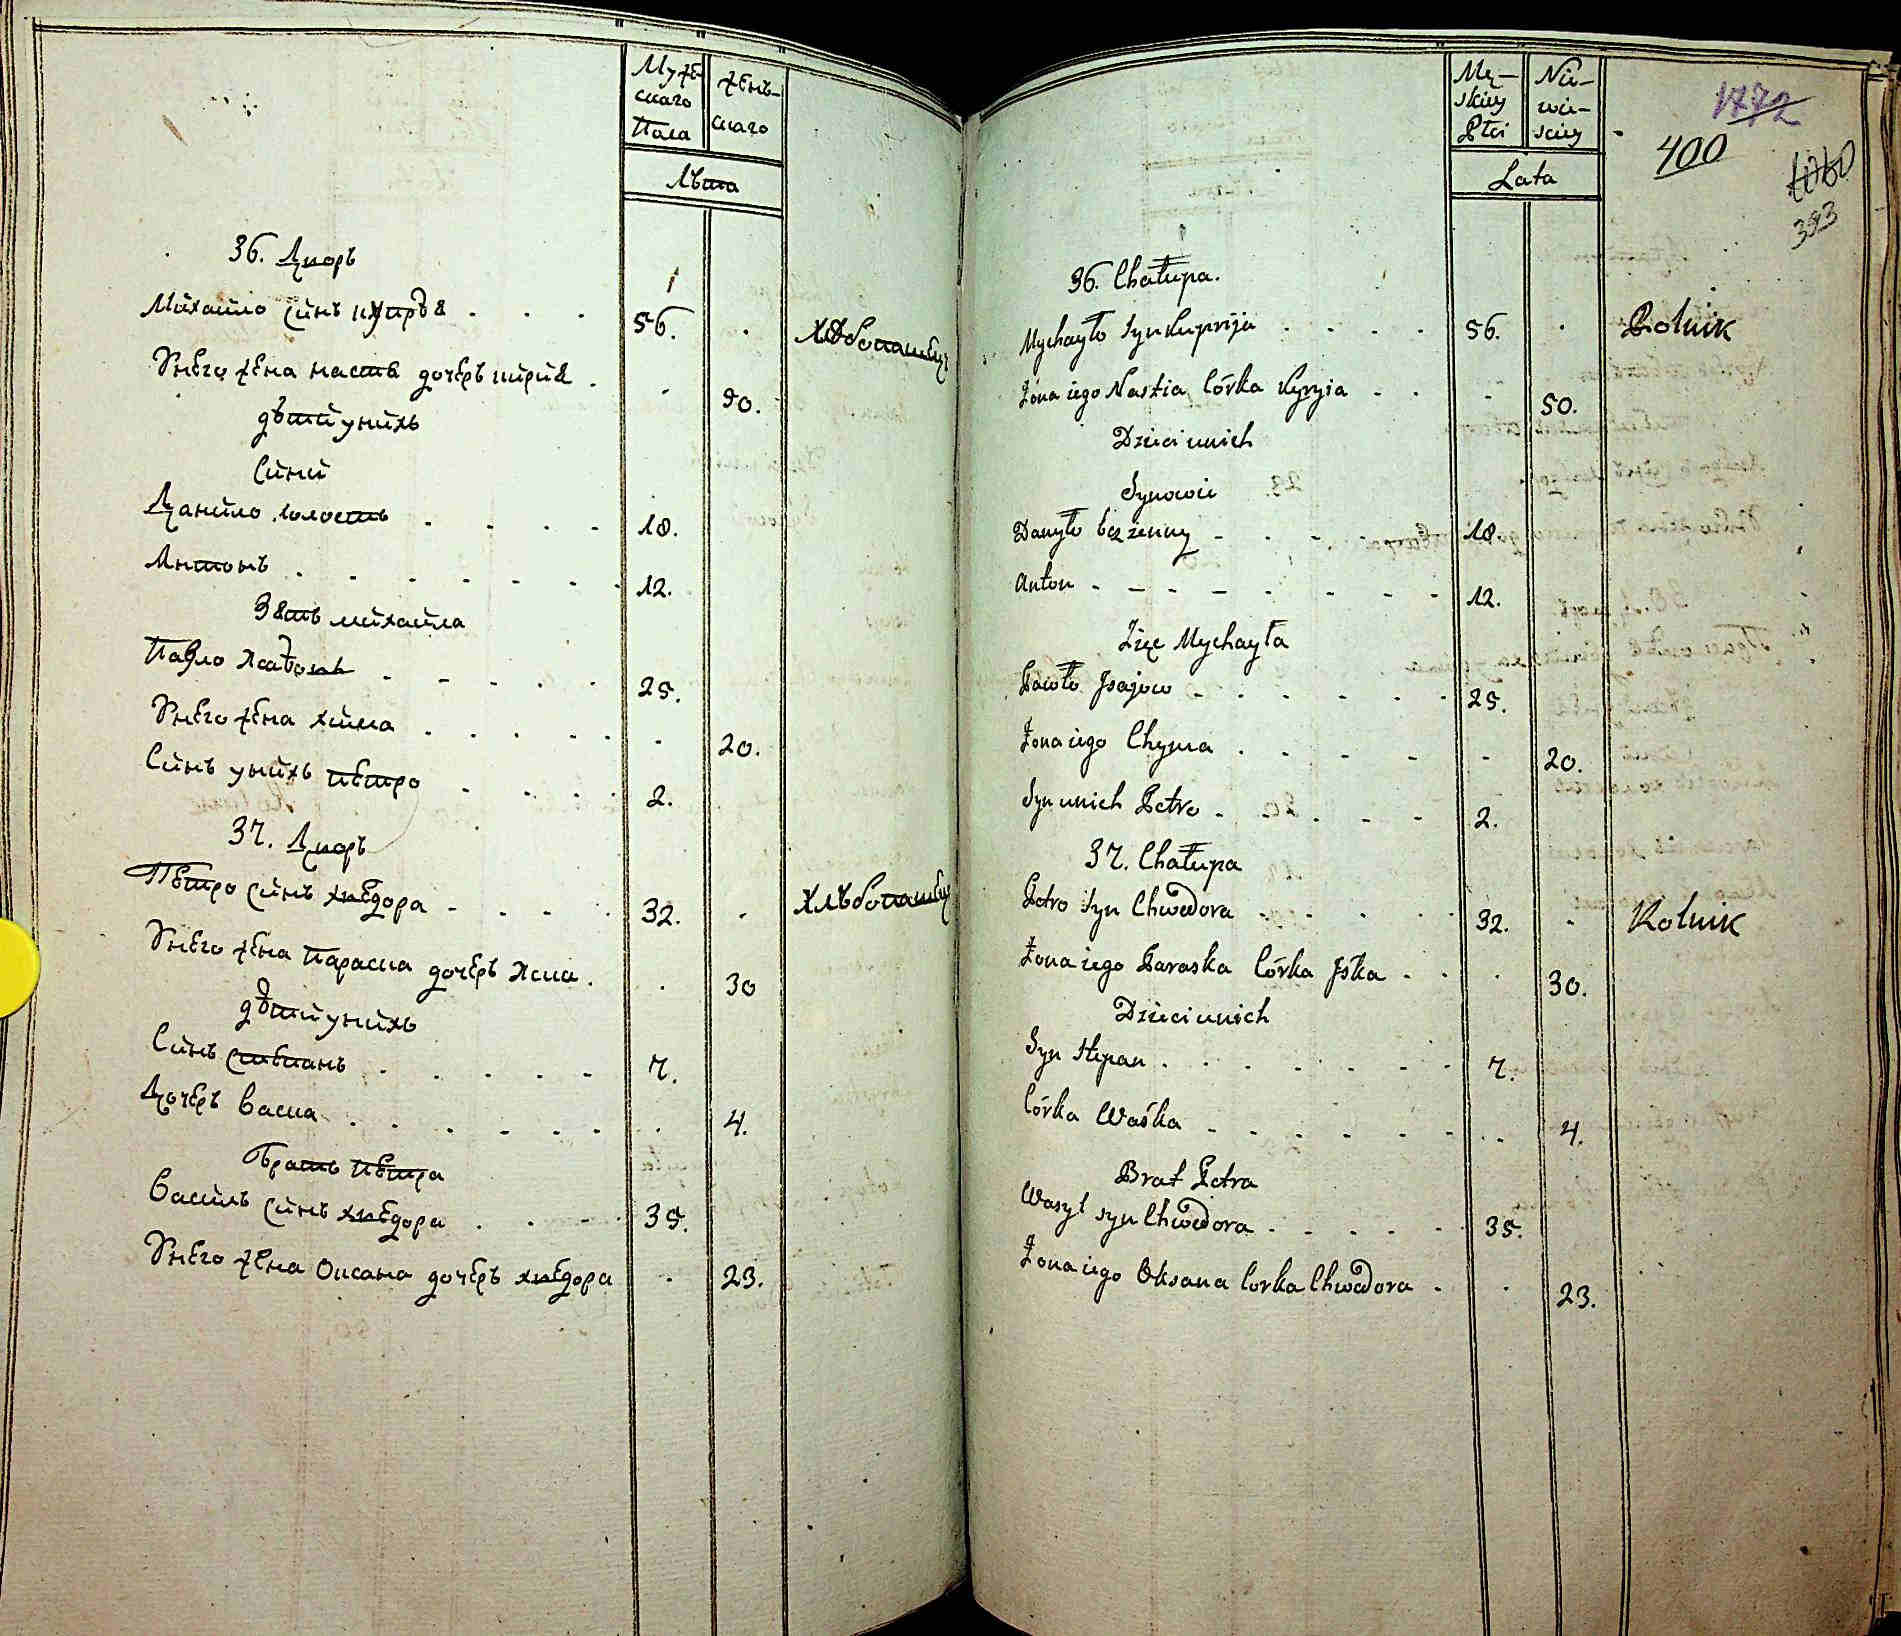 Муже-
скаго
Пола
жень-
скаго
Лѣта
36. Дворъ
Михайло синъ купрѣя . . . 56. . Хлѣбопашец
У него жена настя дочеръ кирия . - 50.
дѣти у нихъ
Сини
Данило холостъ . - - - 18.
Антонъ . - - - - - - 12.
Зять михайла
Павло
У него жена хима . . . . . - 20.
Синъ у нихъ петро . . . . 2.
37. Дворъ
Петро синъ хведора - . . . 32. . Хлѣбопашец
У него жена Параска дочеръ Яска . . 30
дѣти у нихъ
Синъ степанъ . . . . . 7.
Дочеръ Васка . . . . . . . 4.
Братъ петра
Василь синъ хведора . . . 35.
У него жена Оксана дочеръ хведора . 23.
Mę-
skiey
Płci
Nie-
wie-
sciey
Lata
1772
400
393
36. Chałupa.
Mychayło syn Kupryia . . . . 56. . Rolnik
Żona iego Nastia Córka Kyryia . . - 50.
Dzieci u nich
Synowie
Danyło bezżenny - . . - 18.
Anton - - - - - - - - 12.
Zięc Mychayła
Pawło Jsajow - . . . . - 25.
Żona iego Chyma . . . - - - 20.
Syn u nich Petro - . . - - 2.
37. Chałupa
Petro syn Chwedora . . . . 32. - Rolnik
Żona iego Paraska Córka Jśka . . . 30.
Dzieci u nich
Syn Stepan . . . . . . - 7.
Córka Waśka - - - - - - . . 4.
Brat Petra
Wasyl syn Chwedora - . . . - 35.
Żona iego Oksana Corka Chwedora . . 23.